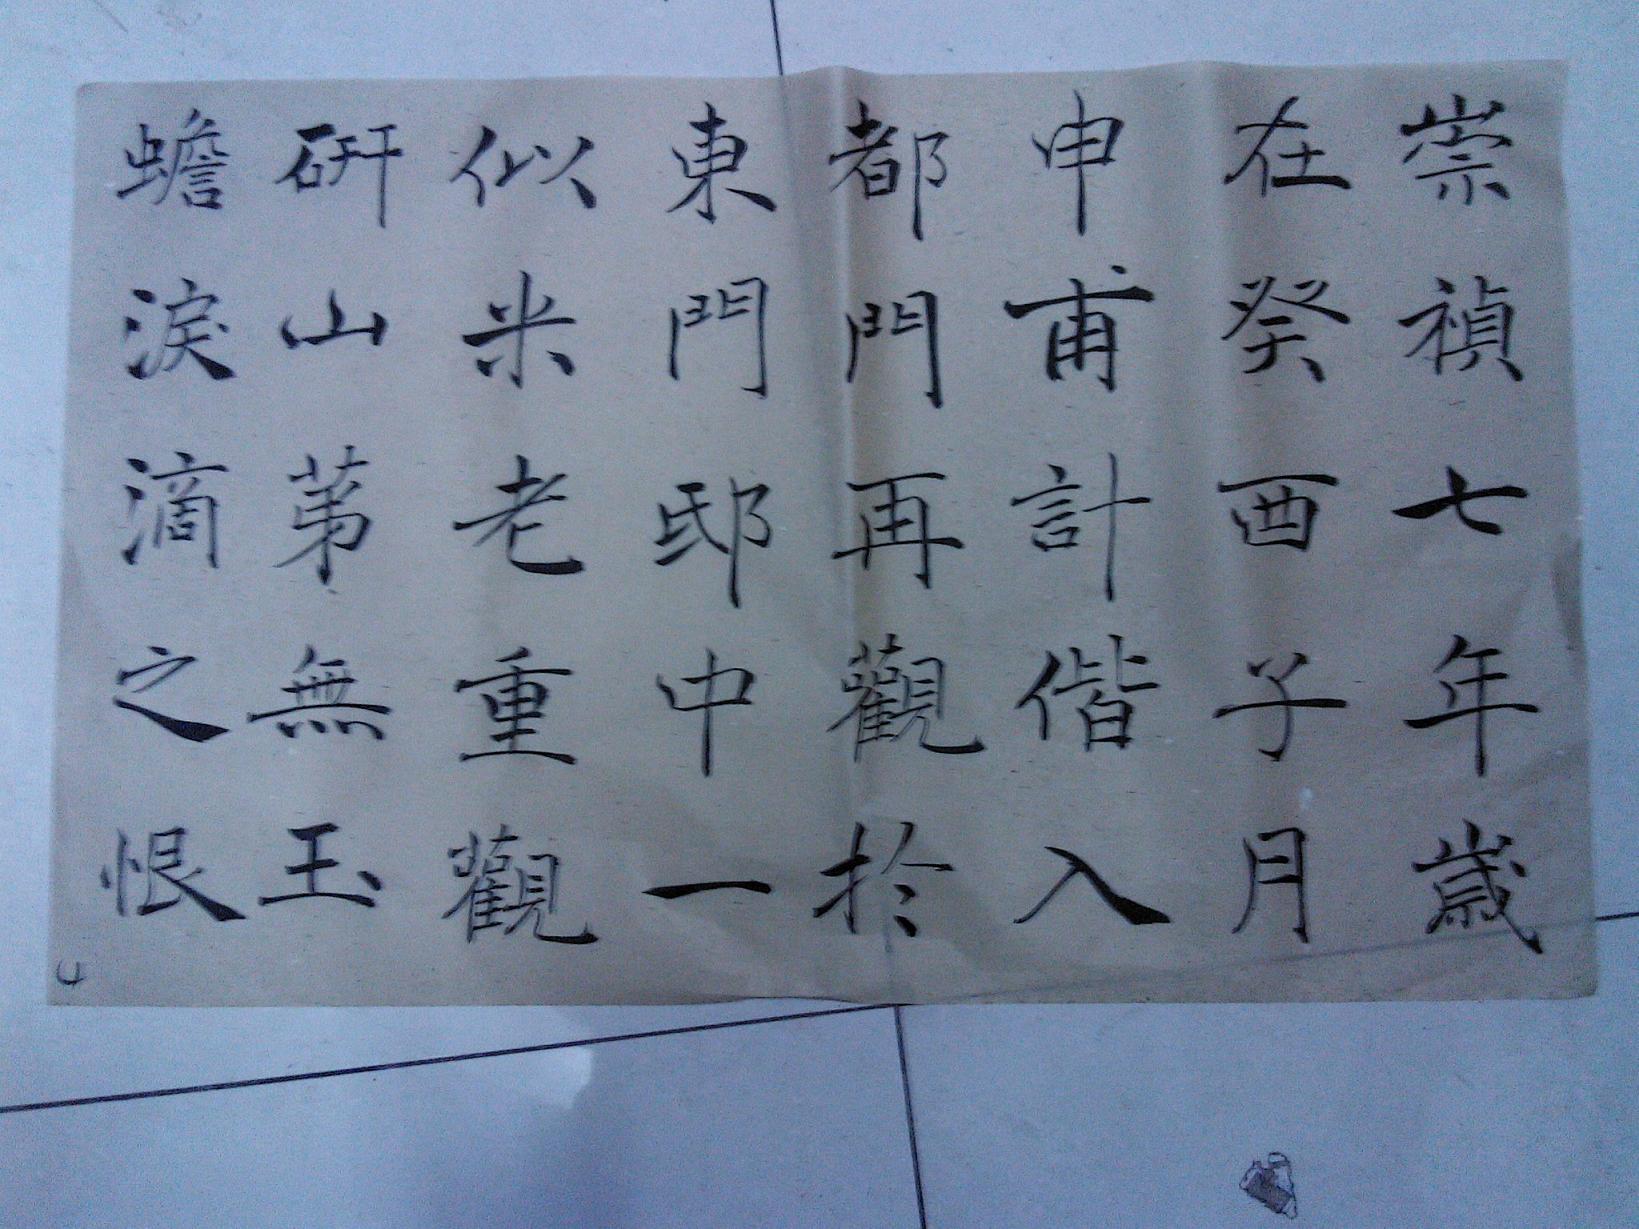 崇禎七年歲
在癸酉子月
申甫計偕入
都門再觀於
東門邸中一
似米老重觀
研山第無玉
蟾淚滴之恨